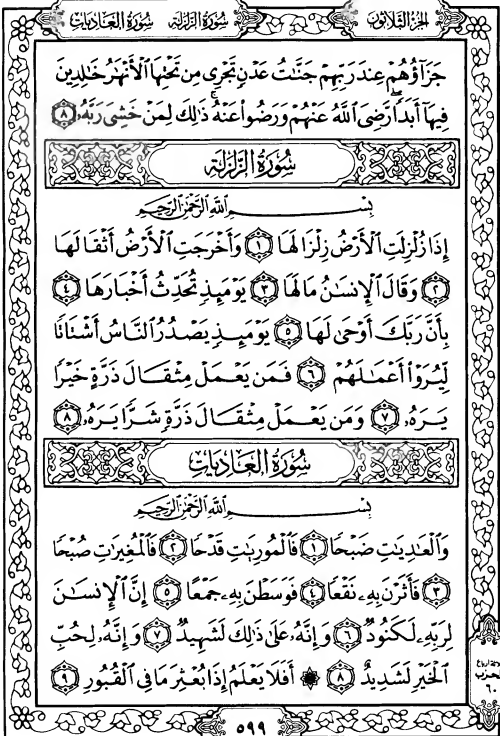 الجزء الثلاثون سورة الزلزلة سورة العاديات
جَزَآؤُهُمْ عِندَ رَبِّهِمْ جَنَّٰتُ عَدْنٍ تَجْرِى مِن تَحْتِهَا ٱلْأَنْهَٰرُ خَٰلِدِينَ
فِيهَآ أَبَدًا رَّضِىَ ٱللَّهُ عَنْهُمْ وَرَضُوا۟ عَنْهُ ذَٰلِكَ لِمَنْ خَشِىَ رَبَّهُۥ ٨
سُورَةُ الزَّلزَلة
بِسْمِ ٱللَّهِ ٱلرَّحْمَٰنِ ٱلرَّحِيمِ
إِذَا زُلْزِلَتِ ٱلْأَرْضُ زِلْزَالَهَا ١ وَأَخْرَجَتِ ٱلْأَرْضُ أَثْقَالَهَا
٢ وَقَالَ ٱلْإِنسَٰنُ مَا لَهَا ٣ يَوْمَئِذٍ تُحَدِّثُ أَخْبَارَهَا ٤
بِأَنَّ رَبَّكَ أَوْحَىٰ لَهَا ٥ يَوْمَئِذٍ يَصْدُرُ ٱلنَّاسُ أَشْتَاتًا
لِّيُرَوْا۟ أَعْمَٰلَهُمْ ٦ فَمَن يَعْمَلْ مِثْقَالَ ذَرَّةٍ خَيْرًا
يَرَهُۥ ٧ وَمَن يَعْمَلْ مِثْقَالَ ذَرَّةٍ شَرًّا يَرَهُۥ ٨
سُورَةُ العَادِيَاتِ
بِسْمِ ٱللَّهِ ٱلرَّحْمَٰنِ ٱلرَّحِيمِ
وَٱلْعَٰدِيَٰتِ ضَبْحًا ١ فَٱلْمُورِيَٰتِ قَدْحًا ٢ فَٱلْمُغِيرَٰتِ صُبْحًا
٣ فَأَثَرْنَ بِهِۦ نَقْعًا ٤ فَوَسَطْنَ بِهِۦ جَمْعًا ٥ إِنَّ ٱلْإِنسَٰنَ
لِرَبِّهِۦ لَكَنُودٌ ٦ وَإِنَّهُۥ عَلَىٰ ذَٰلِكَ لَشَهِيدٌ ٧ وَإِنَّهُۥ لِحُبِّ
ٱلْخَيْرِ لَشَدِيدٌ ٨ ۞ أَفَلَا يَعْلَمُ إِذَا بُعْثِرَ مَا فِى ٱلْقُبُورِ ٩
الحزب
٦٠
٥٩٩